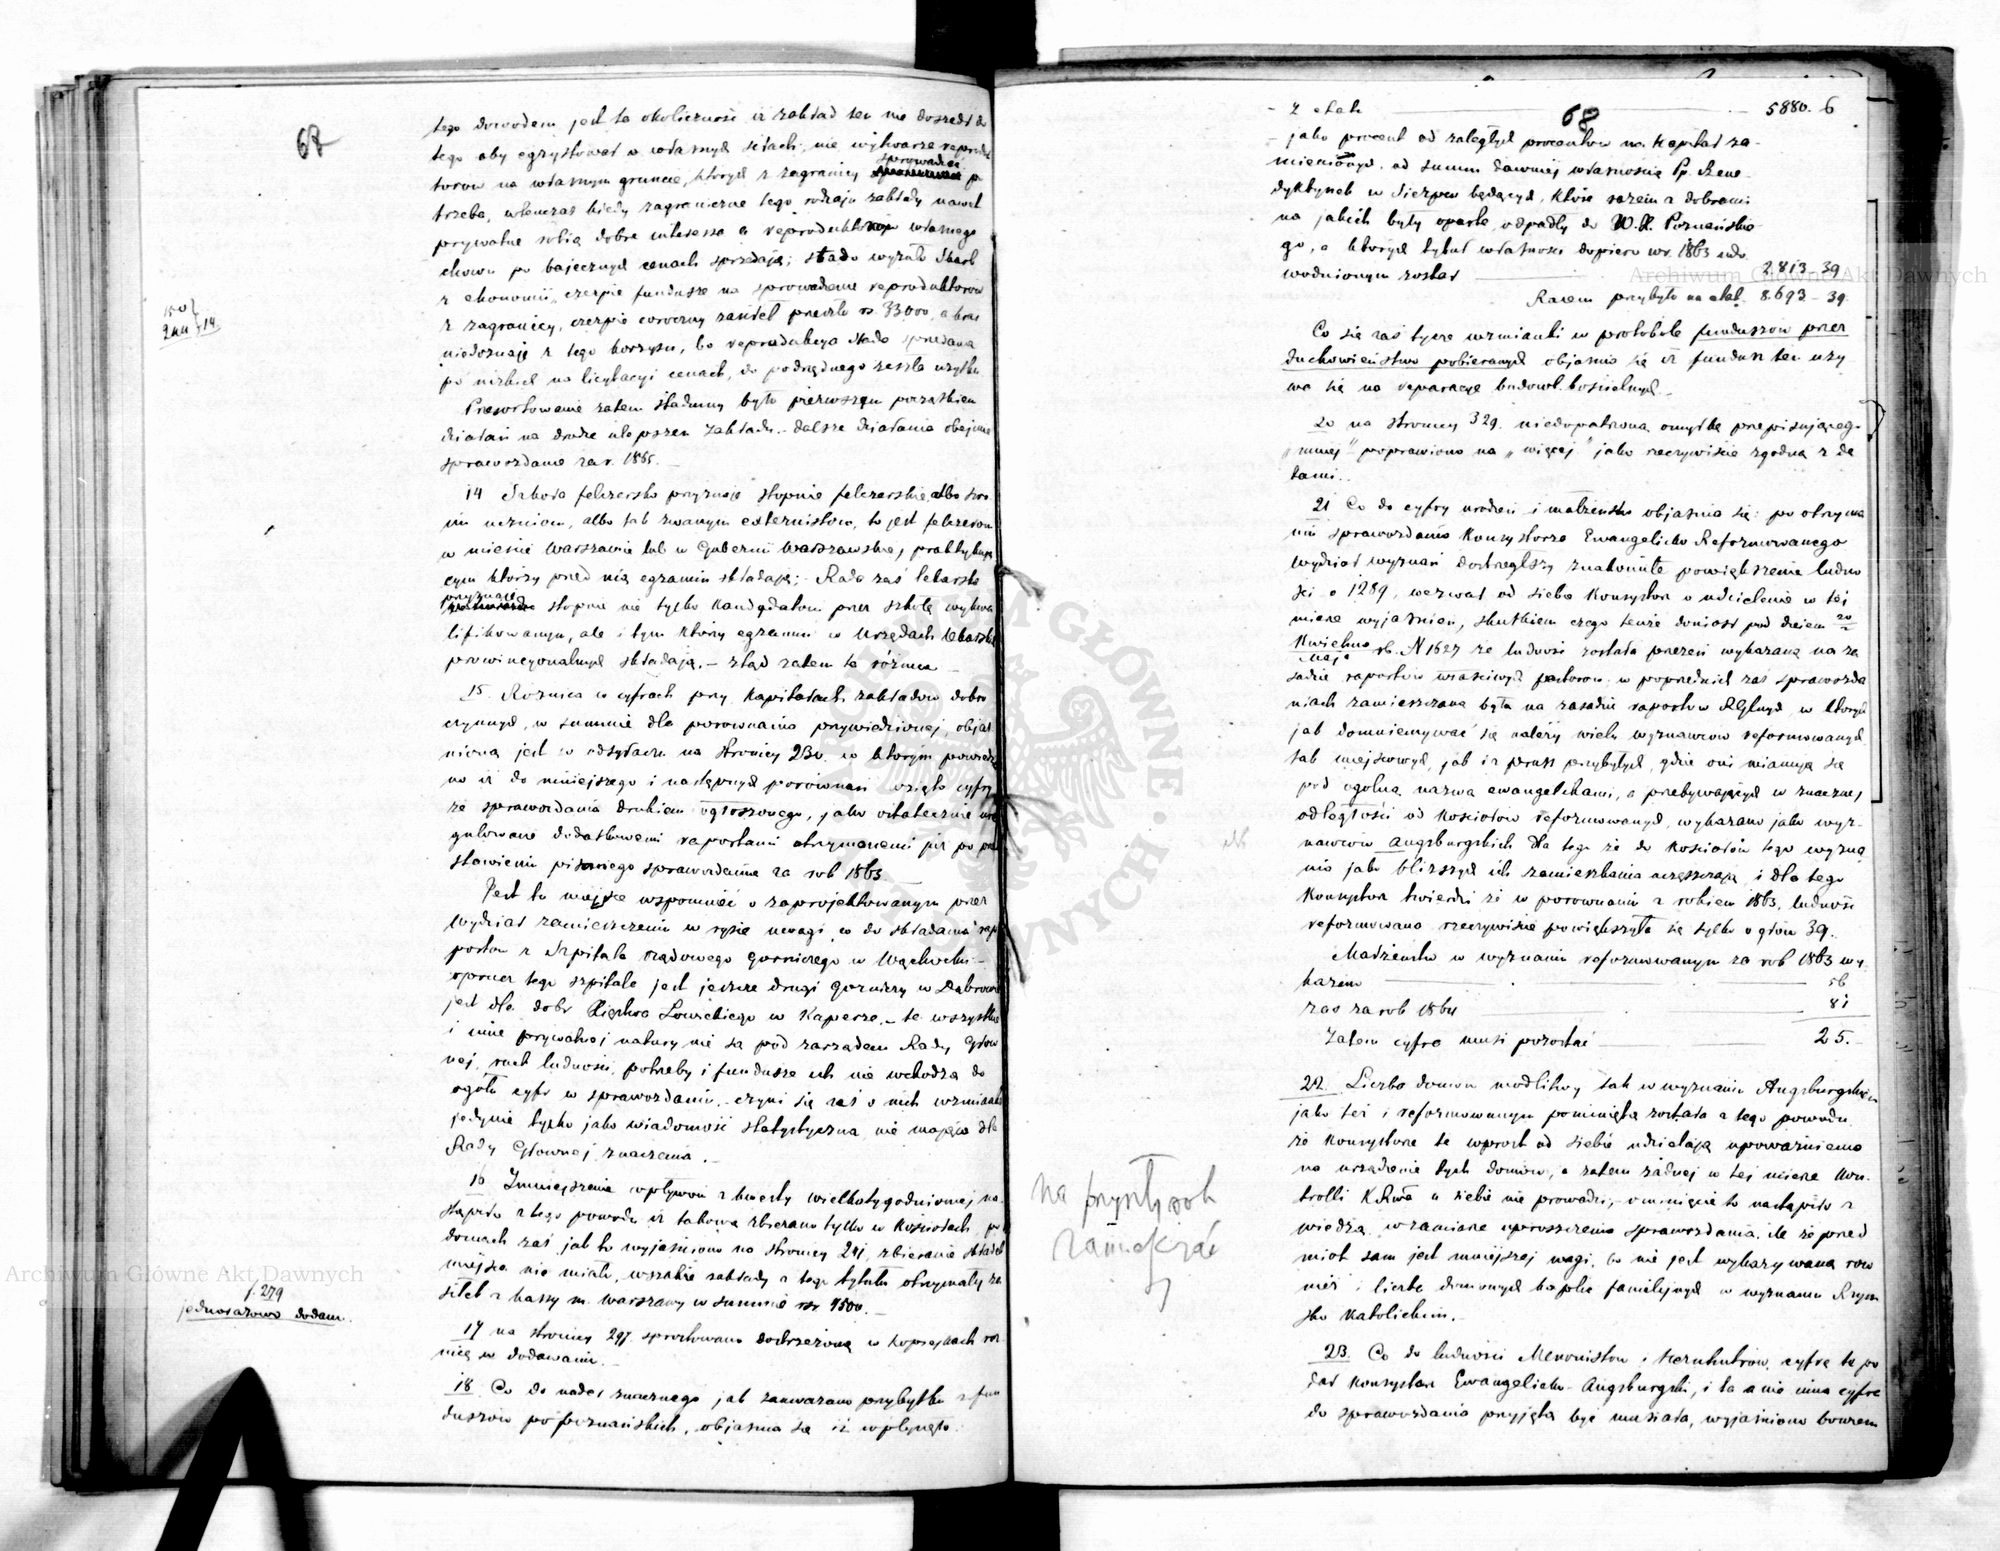 68
tego dowodem jest ta okoliczność iż zakład ten nie doszedł do
tego aby egzystował o własnych siłach, nie wytwarza reproduk
sprowadzać
torow na własnym gruncie, których z zagranicy po
trzeba, wówczas kiedy zagraniczne tego rodzaju zakłady nawet
prywatne robią dobre interessa a reproduktorow własnego
chowu po bajecznych cenach sprzedają; stado wyzuło Skarb
z ekonomii, czerpie fundusze na sprowadzenie reproduktorow
z zagranicy, czerpie coroczny zasiłek przeszło rs. 33000, a kraj
niedoznaje z tego korzyści, bo reprodukcya Stada sprzedana
po nizkich na licytacyi cenach, do podrzędnego zeszła użytku.
Przesortowanie zatem Stadniny było pierwszym początkiem
działań na drodze ulepszeń Zakładu. – dalsze działania obejmie
sprawozdanie za r. 1865. –
14 Szkoła felczerska przyznaje stopnie felczerskie, albo swo
im uczniom, albo tak zwanym externistom, to jest felczerom
w mieście Warszawie lub w Gubernii Warszawskiej praktykują
cym którzy przed nią egzamin składają; – Rada zaś lekarska
przyznaje
stopnie nie tylko Kandydatom przez szkołę wykwa
lifikowanym, ale i tym którzy egzamin w Urzędach lekarskich
prowincyonalnych składają. – ztąd zatem ta różnica –
15. Roznica w cyfrach przy Kapitałach zakładów dobro
czynnych, w summie dla porownania przywiedzionej, objaś
niona jest w odsyłaczu na stronicy 230. w którym powiedzia
no iż do niniejszego i następnych porównań wzięto cyfry
ze sprawozdania drukiem ogłoszonego, jako ostatecznie ure
gulowane dodatkowemi raportami otrzymanemi już po przed
stawieniu pisanego sprawozdania za rok 1863
Jest tu miejsce wspomnieć o zaprojektowanym przez
Wydział zamieszczeniu w rysie uwagi co do składania rap
portow z Szpitala rządowego gorniczego w Wąchocku –
oprocz tego szpitala jest jeszcze drugi gorniczy w Dąbrowie
jest dla dobr Xięstwa Łowickiego w . – te wszystkie
i inne prywatnej natury nie są pod zarządem Rady Głow
nej, ruch ludności, potrzeby i fundusze ich nie wchodzą do
ogółu cyfr w sprawozdaniu, – czyni się zaś o nich wzmianka
jedynie tylko jako wiadomość statystyczna nie mająca dla
Rady Głownej znaczenia. –
16 Zmniejszenie wpływów z kwesty wielkotygodniowej na
stąpiło z tego powodu iż takowa zbierano tylko w Kościołach, po
domach zaś jak to wyjaśniono na stronicy 241, zbieranie składek
miejsca nie miało, wszakże zakłady z tego tytułu otrzymały za
siłek z kassy m. Warszawy w summie rsr. 4500. –
17 na stronicy 297. sprostowano dostrzeżoną w kopiejkach roż
nicę w dodawaniu. –
18 Co do nader znacznego jak zauważano przybytku z fun
duszow popoznańskich, objaśnia się iż wpłynęło
14.
f. 279
jednorazowo dodam.
68
z etatu 5880. 6
– jako procent od zaległych procentow na Kapitał za-
mienionych, od summ dawniej własnością Pp. Bene-
dyktynek w Sierpcu będących, które razem z dobrami
na jakich były oparte, odpadły do W. X. Poznańskie
go, a których tytuł własności dopiero w r. 1863 udo
wodnionym został 2813 39
Razem przybyło na etat. 8.693 – 39.
Co się zaś tycze wzmianki w protokole funduszow przez
duchowieństwo pobieranych objaśnia się iż fundusz ten uży
wa się na reparacye budowl. kościelnych. –
20 na stronicy 329. niedopatrzoną omyłkę przepisującego
„mniej" poprawiono na „więcej" jako rzeczywiście zgodną z da
tami.
21 Co do cyfry urodzeń i małżeństw objaśnia się: po otrzyma
niu sprawozdania Konsystorza Ewangelicko Reformowanego
wydział wyznań dostrzegłszy znakomite powiększenie ludno
ści o 1289, wezwał od siebie Konsystorz o udzielenie w tej
mierze wyjaśnień, skutkiem czego tenże doniosł pod dniem 20/2
Kwietnia
Maja rb. N 1627 że ludność została przezeń wykazaną na za
sadzie raportow właściwych pastorow, w poprzednich zaś sprawozda
niach zamieszczana była na zasadzie raportow RGlnych w których
jak domniemywać się należy wielu wyznawcow reformowanych
tak miejscowych, jak i z Pruss przybyłych, gdzie oni mianują się
pod ogolną nazwą ewangelikami, a przebywających w znacznej
odległości od Kościołow reformowanych, wykazano jako wyz-
nawcow augsburgskich dla tego że do Kościołów tego wyzna
nia jako bliższych ich zamieszkania uczęszczają i dla tego
Konsystorz twierdzi że w porownaniu z rokiem 1863, ludność
reformowana rzeczywiście powiększyła się tylko o głów 39.
Małżeństw w wyznaniu reformowanym za rok 1863 wy-
kazano 56
zaś za rok 1864 81
Zatem cyfra musi pozostać 25. –
22. Liczba domow modlitwy tak w wyznaniu Augsburgskiem
jako też i reformowanym pominiętą została z tego powodu
że Konsystorze te wprost od siebie udzielają upoważnienia
na urządzenie tych domow, a zatem żadnej w tej mierze Kon-
trolli KRWa u siebie nie prowadzi, – ominięcie to nastąpiło z
wiedzą, w zamiarze uproszczenia sprawozdania, ile że przed
miot sam jest mniejszej wagi, bo nie jest wykazywaną row
nież i liczba domowych kaplic familijnych w wyznaniu Rzym
sko Katolickim. –
23. Co do ludności Menonistow i Hernhutrow, cyfrę tę po
dał Konsystorz Ewangelicko-Augsburgski, i ta a nie inna cyfra
do sprawozdania przyjętą być musiała, wyjaśniono bowiem
na przyszły rok
Archiwum Główne Akt Dawnych
Archiwum Główne Akt Dawnych
ARCHIWUM GŁÓWNE AKT DAWNYCH